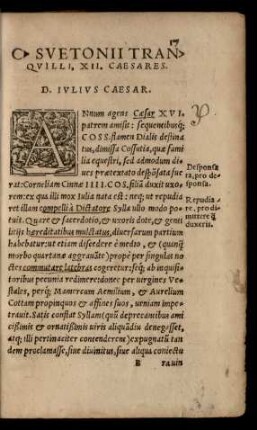 C. SVETONII TRAN
QVILLI, XII. CAESARES.
D. IVLIVS CAESAR.
ANnum agens Cæsar XVI.
patrem amisit: sequentibusq;
COSS. flamen Dialis destina
tus, dimissa Cossutia, quæ fami
lia equestri, sed admodum di
ues prætextato despōsata fue
rat: Corneliam Cinnæ IIII. COS. filiā duxit uxo
rem: ex qua illi mox Iulia nata est: neq; ut repudia
ret illam compelli à Dictatore Sylla ullo modo po
tuit. Quare & sacerdotio, & uxoris dote, & genti
litijs hæreditatibus mulctatus, diuersarum partium
habebatur: ut etiam discedere è medio, & (quāq̃
morbo quartanæ aggrauāte) propè per singulas no
ctes commutare latebras cogeretur: seq; ab inquisi
toribus pecunia redimeret: donec per uirgines Ve
stales, perq; Mamercum Aemilium, & Aurelium
Cottam propinquos & affines suos, ueniam impe
trauit. Satis constat Syllam, quū deprecantibus ami
cissimis & ornatissimis uiris aliquādiu denegasset,
atq; illi pertinaciter contenderent, expugnatū tan
dem proclamasse, siue diuinitus, siue aliqua coniectu
B
Desponsa
ta, pro de
sponsa.
Repudia
re, pro di
mittere q̃
duxeris.